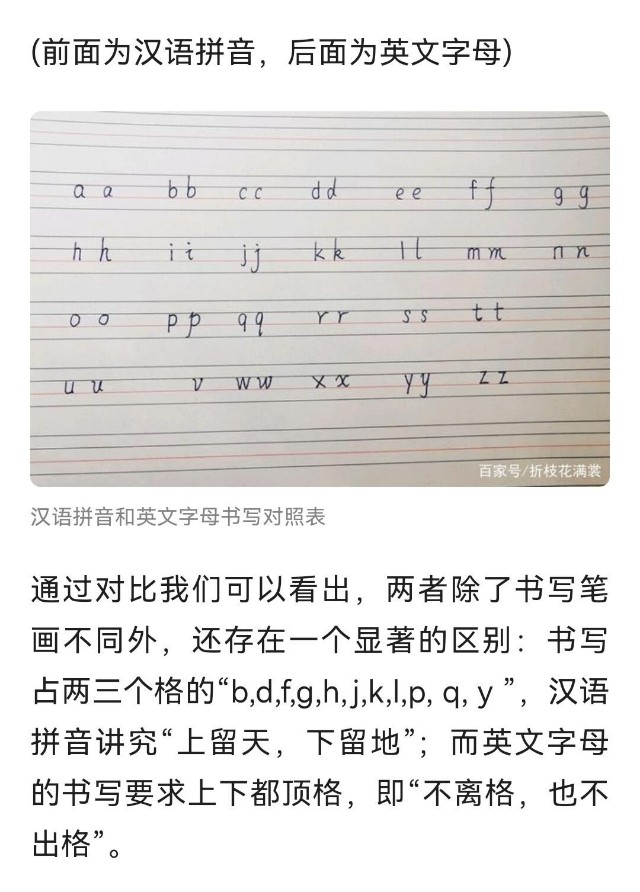 (前面为汉语拼音，后面为英文字母)
a a b b c c d d e e f f g g
h h i i j j k k l l m m n n
o o p p q q r r s s t t
u u v w w x x y y z z
百家号/折枝花满裳
汉语拼音和英文字母书写对照表
通过对比我们可以看出，两者除了书写笔
画不同外，还存在一个显著的区别：书写
占两三个格的“b,d,f,g,h,j,k,l,p, q, y ”，汉语
拼音讲究“上留天，下留地”；而英文字母
的书写要求上下都顶格，即“不离格，也不
出格”。